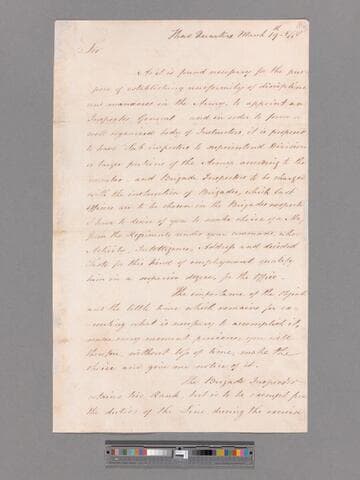 Head Quarters March 19th 1778
Sir
As it is found necessary for the pur-
pose of establishing uniformity of discipline
and manœuvres in the Army, to appoint an
Inspector General and in order to form a
well organised body of Instructors it is proposed
to have Sub inspectors to superintend Divisions
or larger portions of the Army according to the
number, and Brigade Inspectors to be charged
with the instruction of Brigades, which last
officers are to be chosen in the Brigades
I have to desire of you to make choice of a
from the Regiments under your command, whose
Activity, Intelligence, Address and decided
taste for this kind of employment qualify
him in a superior degree, for the office
The importance of the Object
and the little time which remains for ex-
ecuting what is necessary to accomplish it,
make every moment precious, you will
therefore, without loss of time, make the
choice and give me notice of it.
The Brigade Inspector
his Rank, but is to be exempt from
the duties of the Line during the exercise